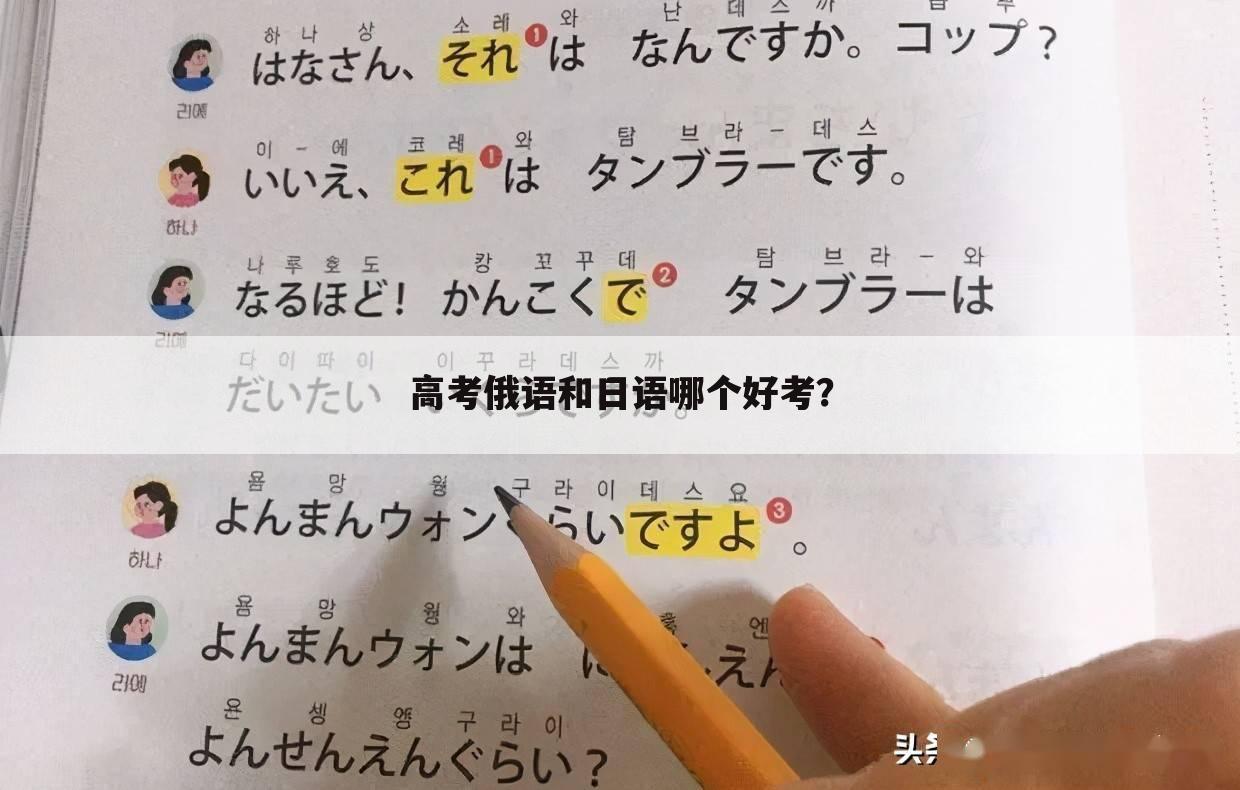 하 나 상 소 레 와 난 데 스 까
はなさん、それ❶は なんですか。コップ?
리에
이 - 에 코 레 와 탐 브 라 - 데 스
いいえ、これ❶は タンブラーです。
하나
나 루 호 도 캉 꼬 꾸 데 탐 브 라 - 와
なるほど! かんこくで❷ タンブラーは
리에
다 이 따 이 이 꾸 라 데 스 까
だいたい
高考俄语和日语哪个好考?
욤 망 웡 구 라 이 데 스 요
よんまんウォン らいですよ❸。
하나
욤 망 웡 와 엔
よんまんウォンは えん
리에
욘 셍 엥 구 라 이
よんせんえんぐらい?
头条